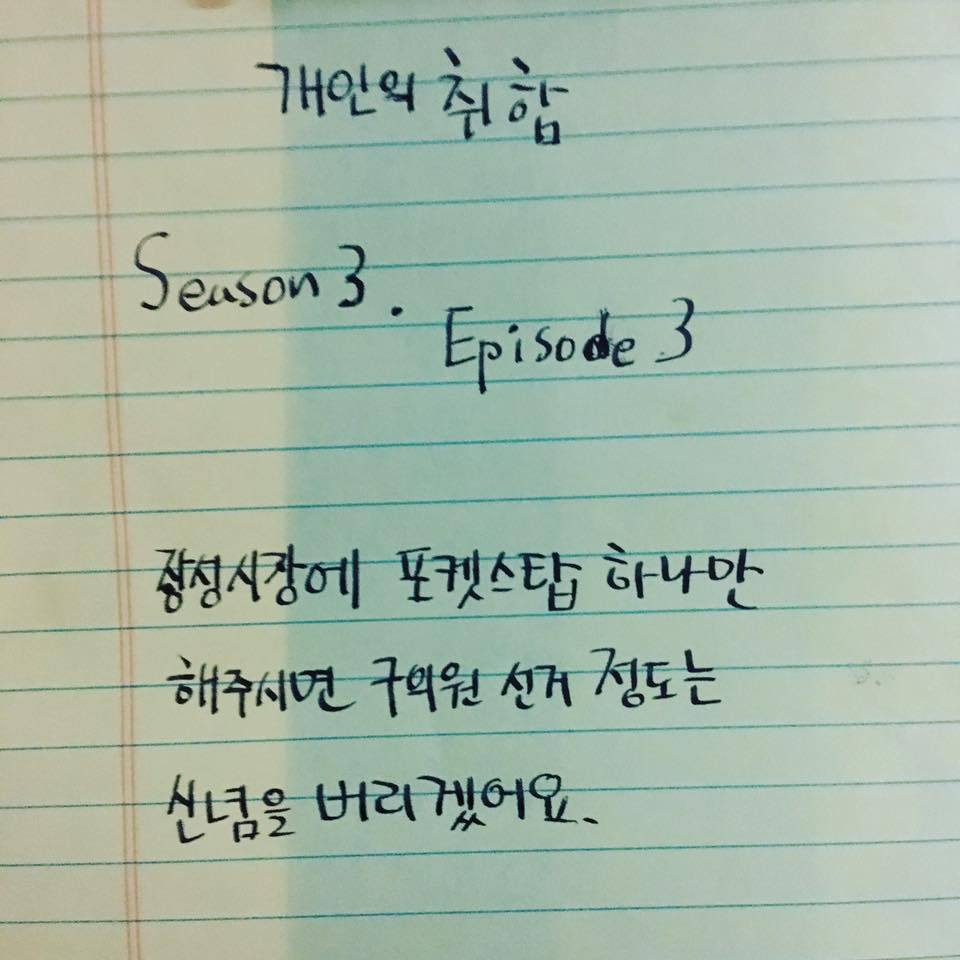 개인의 취함
Season 3.
Episode 3
장성시장에 포켓스탑 하나만
해주시면 구의원 선거 정도는
신념을 버리겠어요.